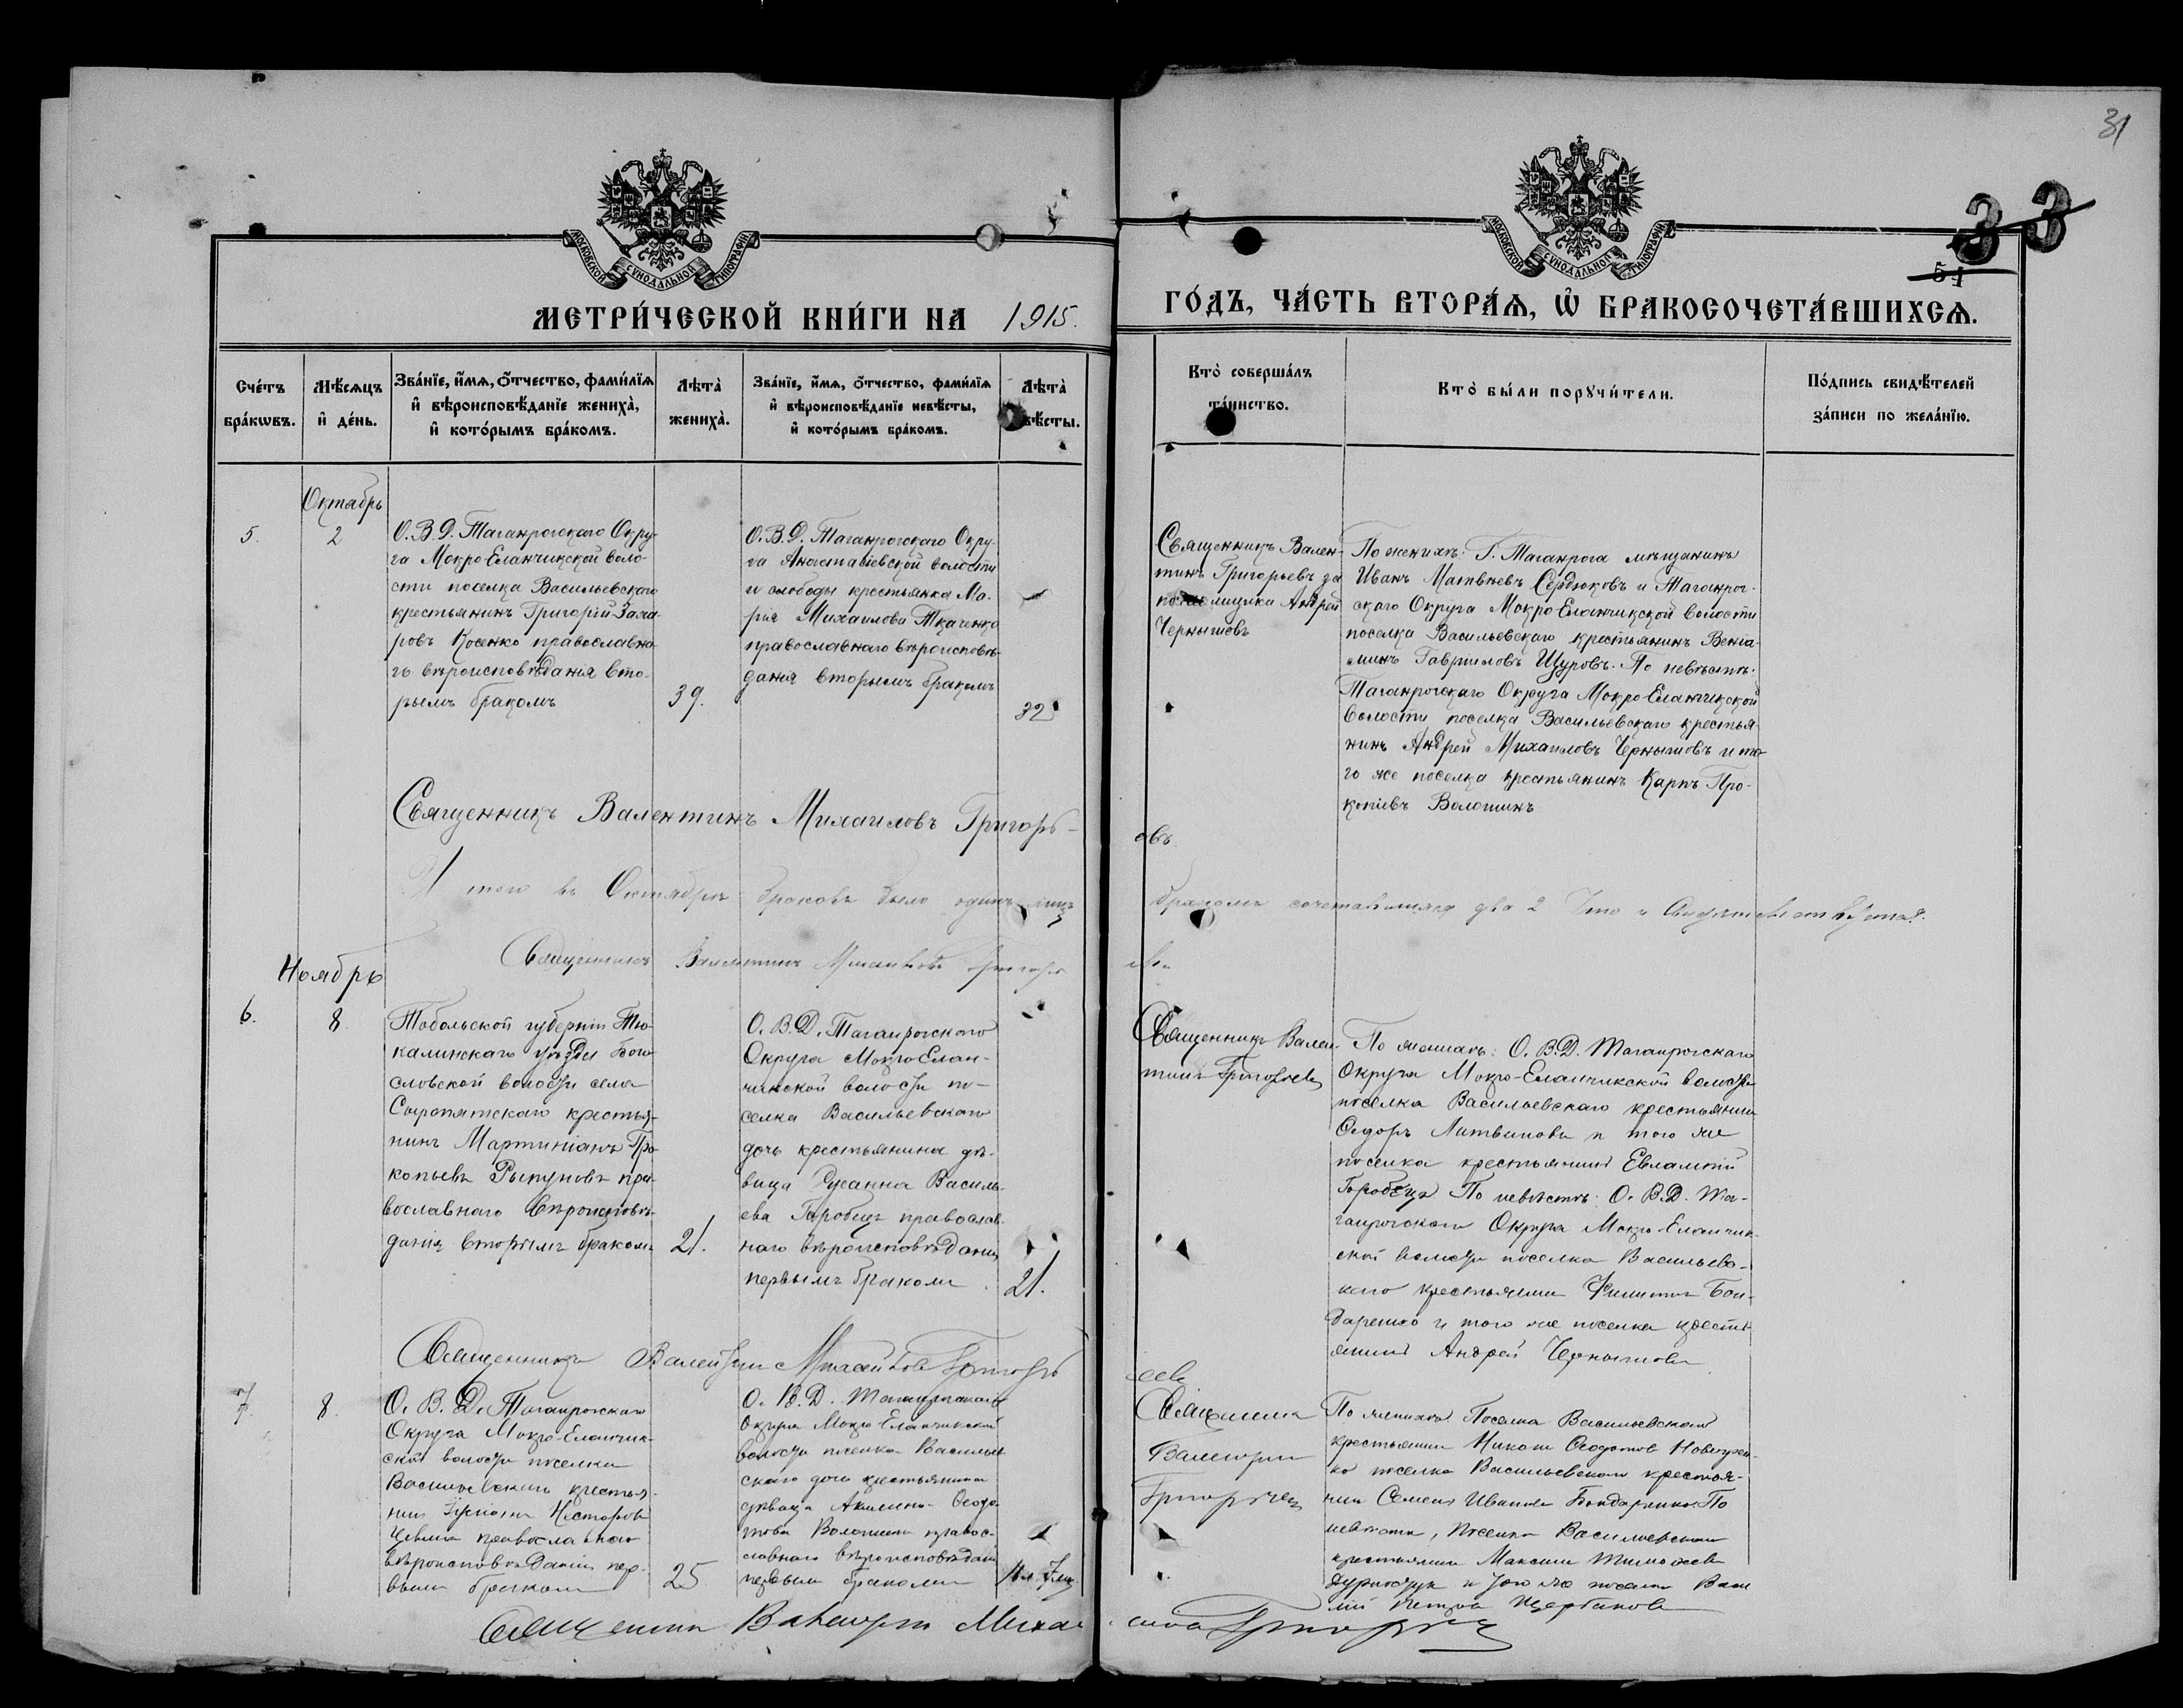 31
33
54
МОСКОВСКОЙ СУНОДАЛЬНОЙ ТИПОГРАФІИ
МОСКОВСКОЙ СУНОДАЛЬНОЙ ТИПОГРАФІИ
МЕТРИ́ЧЕСКОЙ КНИ́ГИ НА 1915.
ГО́ДЪ, ЧА́СТЬ ВТОРА́Ѧ, Ѽ БРАКОСОЧЕТА́ВШИХСѦ.
Сче́тъ
бра́кѡвъ.
Мѣ́сѧцъ
и҆ де́нь.
Зва́нїе, и҆́мѧ, ѻ҆́тчество, фами́лїѧ
и҆ вѣроисповѣ́данїе жениха̀,
и҆ кото́рымъ бра́комъ.
Лѣта̀
жениха̀.
Зва́нїе, и҆́мѧ, ѻ҆́тчество, фами́лїѧ
и҆ вѣроисповѣ́данїе невѣ́сты,
и҆ кото́рымъ бра́комъ.
Лѣта̀
вѣ́сты.
Кто̀ соверша́лъ
та́инство.
Кто̀ бы́ли порꙋчи́тели.
По́дпись свидѣ́телей
за́писи по жела́нїю.
Октябрь
5.
2
О.В.Д. Таганрогскаго Окру-
га Мокро-Еланчикской воло-
сти поселка Васильевскаго
крестьянинъ Григорій Заха-
ровъ Косенко православна-
го вѣроисповѣданія вто-
рымъ бракомъ
39.
О.В.Д. Таганрогскаго Окру-
га Анастасіевской волости
и слободы крестьянка Ма-
рія Михаилова Ткаченко
православнаго вѣроисповѣ-
данія вторымъ бракомъ
32
Священникъ Вален-
тинъ Григорьевъ за
Андрей
Чернышовъ
По женихѣ: Г. Таганрога мѣщанинъ
Иванъ Матвѣевъ Сердюковъ и Таганрог-
скаго Округа Мокро-Еланчикской волости
поселка Васильевскаго крестьянинъ Веніа-
минъ Гавріиловъ Щуровъ. По невѣстѣ:
Таганрогскаго Округа Мокро-Еланчикской
волости поселка Васильевскаго крестья-
нинъ Андрей Михаиловъ Чернышовъ и то-
го же поселка крестьянинъ Карпъ Про-
копіевъ Волошинъ
Священникъ Валентинъ Михаиловъ Григорь-
евъ
Итого въ Октябрѣ браковъ было одинъ лицъ
бракомъ сочетавшихся два 2 Что и Свидѣтельствуетъ
Священникъ Валентинъ Михаиловъ Григорь
евъ
Ноябрь
6.
8.
Тобольской губерніи Тю-
калинскаго уѣзда Бого-
словской волости села
Сыропятскаго крестья-
нинъ Мартиніанъ Про-
копьевъ Рыпуновъ пра-
вославнаго вѣроисповѣ-
данія вторымъ бракомъ
21.
О.В.Д. Таганрогскаго
Округа Мокро-Елан-
чикской волости по-
селка Васильевскаго
дочь крестьянина дѣ-
вица Сусанна Василь-
ева Горобецъ православ-
наго вѣроисповѣданія
первымъ бракомъ
21.
Священникъ Вален-
тинъ Григорьевъ
По женихѣ: О.В.Д. Таганрогскаго
Округа Мокро-Еланчикской волости
поселка Васильевскаго крестьянинъ
Сидоръ Литвиновъ и того же
поселка крестьянинъ Евлампій
Горобецъ По невѣстѣ: О.В.Д. Та-
ганрогскаго Округа Мокро-Еланчик-
ской волости поселка Васильев-
скаго крестьянинъ Филиппъ Бон-
даренко и того же поселка крестья-
янинъ Андрей Чернышовъ
Священникъ Валентинъ Михаиловъ Григорь
евъ
7.
8.
О.В.Д. Таганрогскаго
Округа Мокро-Еланчик-
ской волости поселка
Васильевскаго крестья-
нинъ Несторовъ
православнаго
вѣроисповѣданія пер-
вымъ бракомъ
25
О.В.Д. Таганрогскаго
Округа Мокро-Еланчикской
волости поселка Васильев-
скаго дочь крестьянина
дѣвица Акилина Ѳеодо-
това Волошина правос-
славнаго вѣроисповѣданія
первымъ бракомъ
Священникъ
Валентинъ
Григорьевъ
По женихѣ Поселка Васильевскаго
крестьянинъ Никонъ Ѳеодотовъ
поселка Васильевскаго крестья-
нинъ Семенъ Ивановъ Бондаренко По
невѣстѣ, Поселка Васильевскаго
крестьянинъ Максимъ Тимоѳеевъ
и того же поселка Васи
лій Петровъ Щербаковъ
Священникъ Валентинъ Михаи
ловъ Григорьевъ